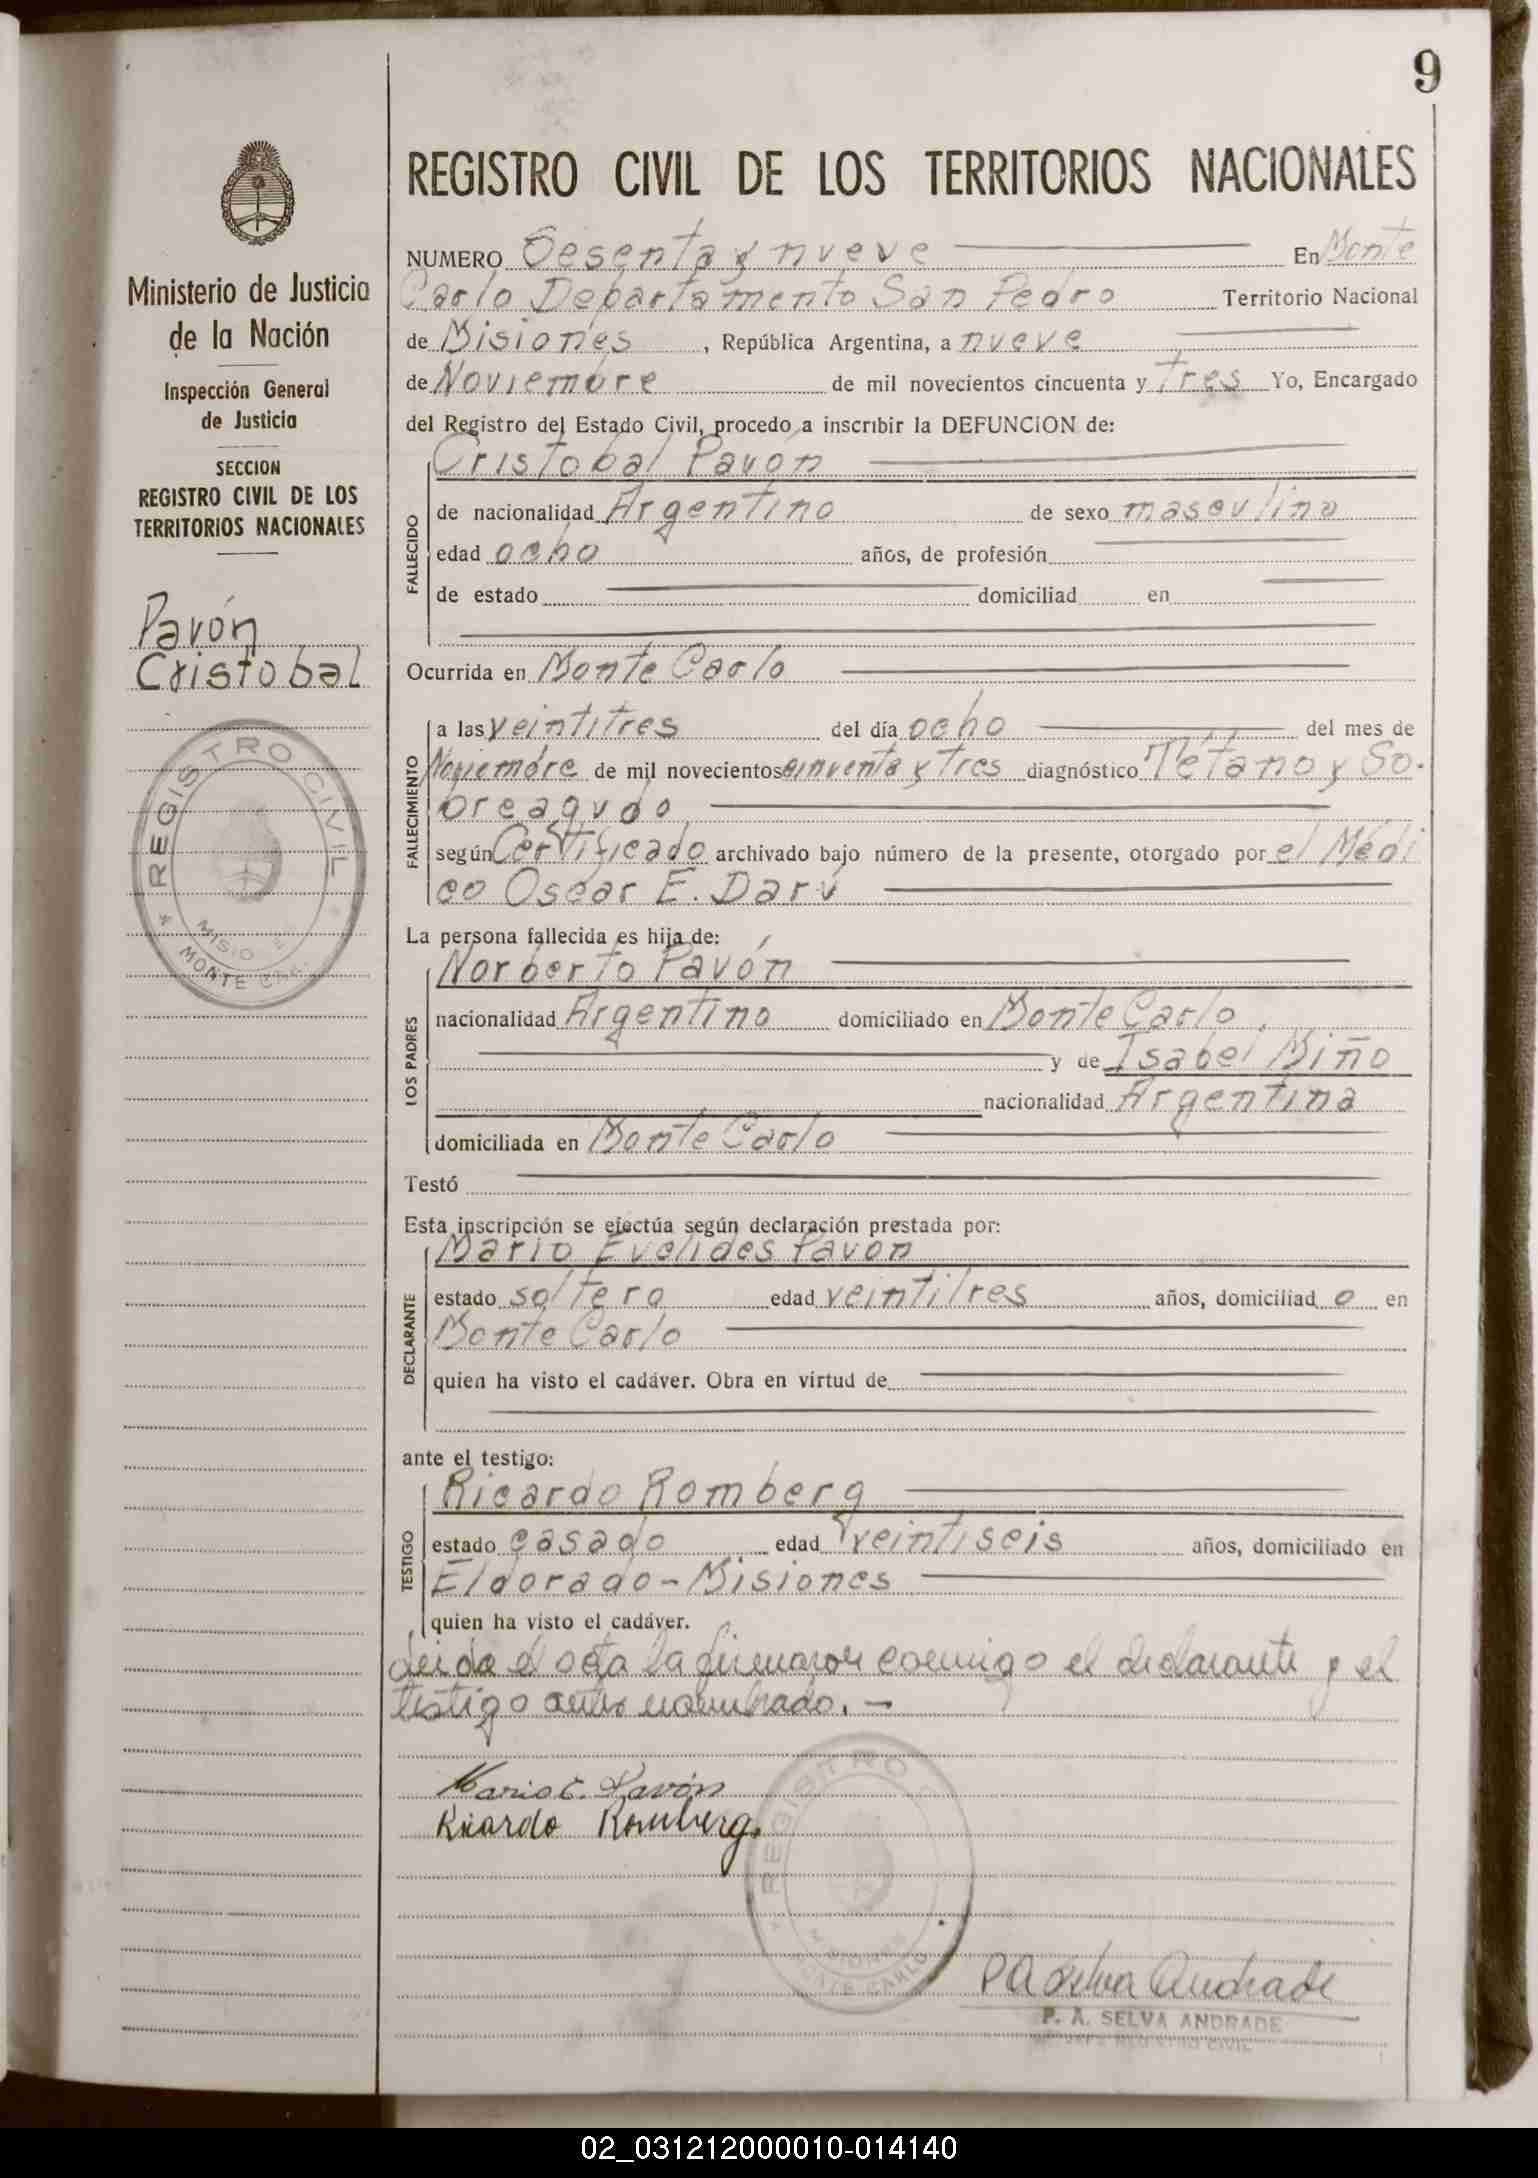 9
REGISTRO CIVIL DE LOS TERRITORIOS NACIONALES
Ministerio de Justicia
de la Nación
Inspección General
de Justicia
SECCION
REGISTRO CIVIL DE LOS
TERRITORIOS NACIONALES
Pavón
Cristobal
REGISTRO CIVIL
MONTE
NUMERO Sesenta y nueve En Monte
Carlo Departamento San Pedro Territorio Nacional
de Misiones, República Argentina, a nueve
de Noviembre de mil novecientos cincuenta y tres Yo, Encargado
del Registro del Estado Civil, procedo a inscribir la DEFUNCION de:
Cristobal Pavón
FALLECIDO
de nacionalidad Argentino de sexo masculino
edad ocho años, de profesión
de estado domiciliad en
Ocurrida en Monte Carlo
FALLECIMIENTO
a las veintitres del día ocho del mes de
Noviembre de mil novecientos cinventa y tres diagnóstico Tétano y So-
breagudo
según Certificado archivado bajo número de la presente, otorgado por el Médi
co Oscar E. Darú
La persona fallecida es hija de:
LOS PADRES
Norberto Pavón
nacionalidad Argentino domiciliado en Monte Carlo
y de Isabel Miño
nacionalidad Argentina
domiciliada en Monte Carlo
Testó
Esta inscripción se efectúa según declaración prestada por:
DECLARANTE
Mario Euclides Pavon
estado soltero edad veintitres años, domiciliad o en
Monte Carlo
quien ha visto el cadáver. Obra en virtud de
ante el testigo:
TESTIGO
Ricardo Romberg
estado casado edad veintiseis años, domiciliado en
Eldorado - Misiones
quien ha visto el cadáver.
Leida el acta la firmaron conmigo el declarante y el
testigo antes nombrado. -
Mario E. Pavón
Ricardo Romberg.
REGISTRO
MISIONES
MONTE CARLO
P A Selva Andrade
P. A. SELVA ANDRADE
REGISTRO CIVIL
02_031212000010-014140